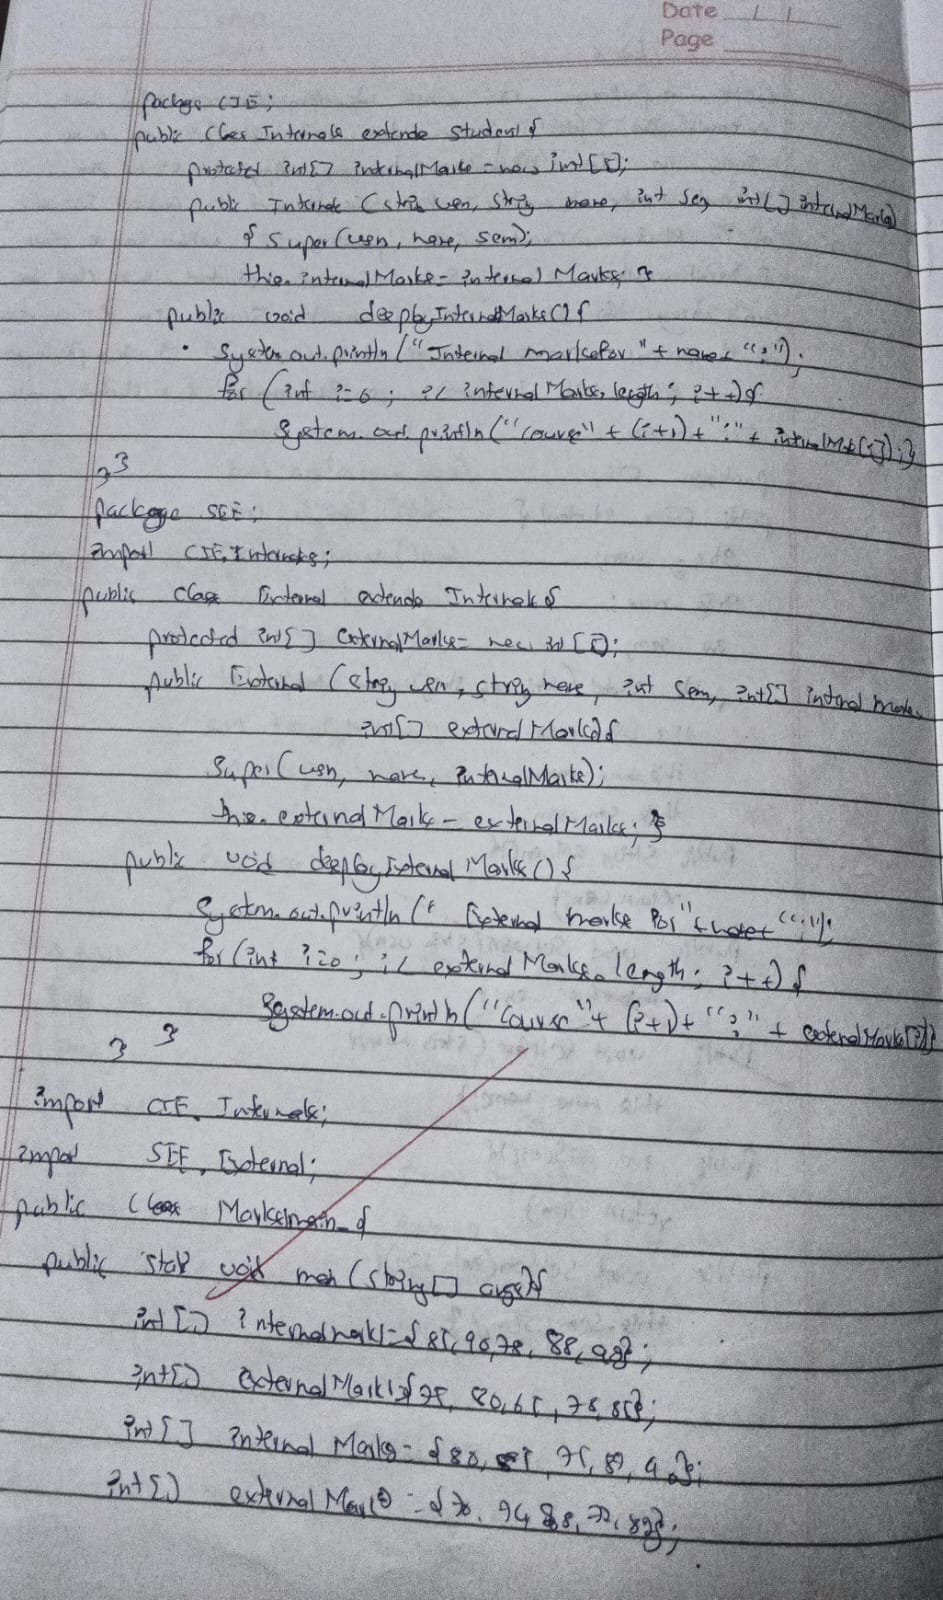 Date / /
Page
package CIE;
public class Internals extends Student {
protected int[] internalMarks = new int[5];
public Internals (String usn, String name, int sem, int[] internalMarks)
{ super(usn, name, sem);
this.internalMarks = internalMarks; }
public void displayInternalMarks() {
System.out.println("Internal marks for " + name + ":");
for (int i=0; i< internalMarks.length; i++) {
System.out.println("Course" + (i+1) + ":" + internalMarks[i]); }
} }
package SEE;
import CIE.Internals;
public class External extends Internals {
protected int[] externalMarks = new int[5];
public External (String usn, String name, int sem, int[] internal marks,
int[] externalMarks) {
super(usn, name, internalMarks);
this.externalMarks = externalMarks; }
public void displayExternalMarks() {
System.out.println(" External marks for" + name + ":");
for (int i=0; i< externalMarks.length; i++) {
System.out.println("Course" + (i+1) + ":" + externalMarks[i]);
} }
import CIE.Internals;
import SEE.External;
public class Marksmain {
public static void main (String[] args) {
int[] internalmarks1={85,90,78,88,92};
int[] externalMarks1={75,80,65,78,85};
int[] internal Marks = {80,
int[] externalMarks2 = {70,